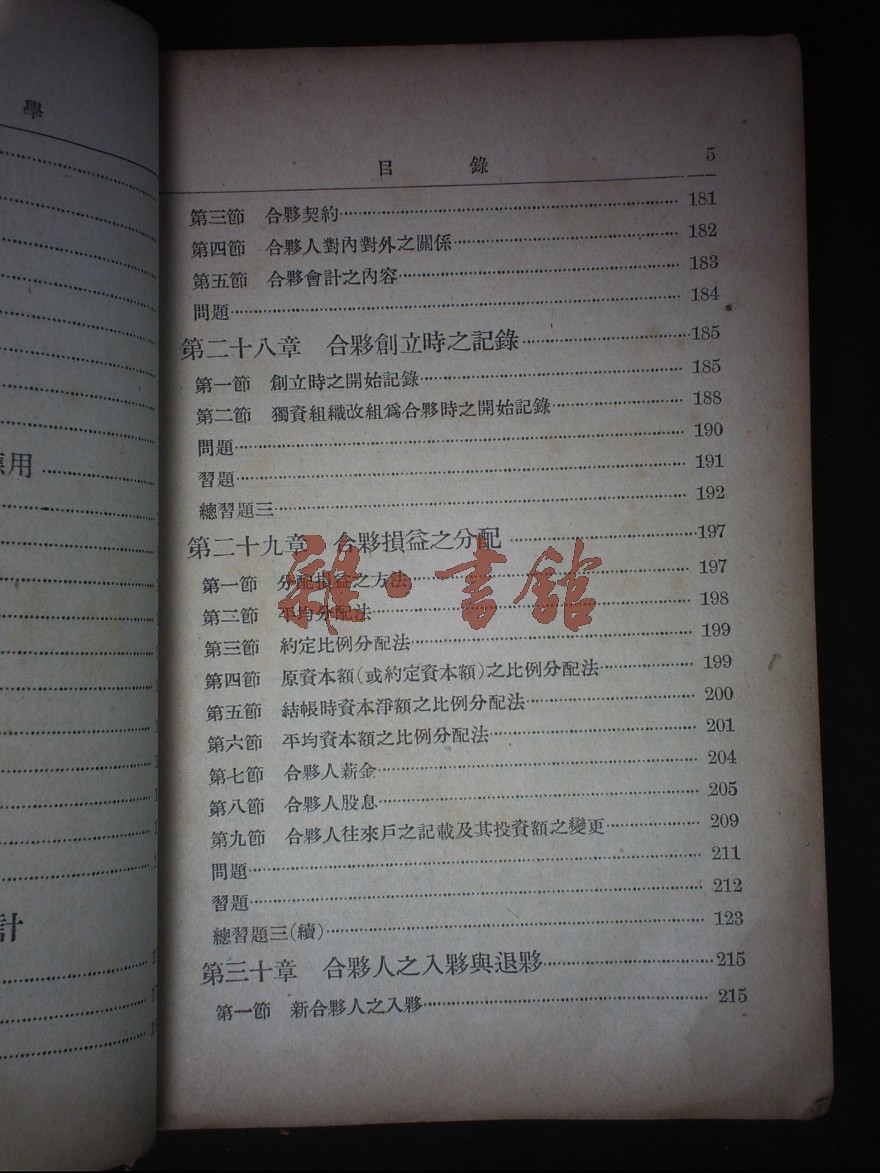 學
應用
計
目 錄 5
第三節 合夥契約 181
第四節 合夥人對內對外之關係 182
第五節 合夥會計之內容 183
問題 184
第二十八章 合夥創立時之記錄 185
第一節 創立時之開始記錄 185
第二節 獨資組織改組爲合夥時之開始記錄 188
問題 190
習題 191
總習題三 192
第二十九章 合夥損益之分配 197
第一節 分配損益之方法 197
第二節 平均分配法 198
第三節 約定比例分配法 199
第四節 原資本額(或約定資本額)之比例分配法 199
第五節 結帳時資本淨額之比例分配法 200
第六節 平均資本額之比例分配法 201
第七節 合夥人薪金 204
第八節 合夥人股息 205
第九節 合夥人往來戶之記載及其投資額之變更 209
問題 211
習題 212
總習題三(續) 123
第三十章 合夥人之入夥與退夥 215
第一節 新合夥人之入夥 215
雜·書館